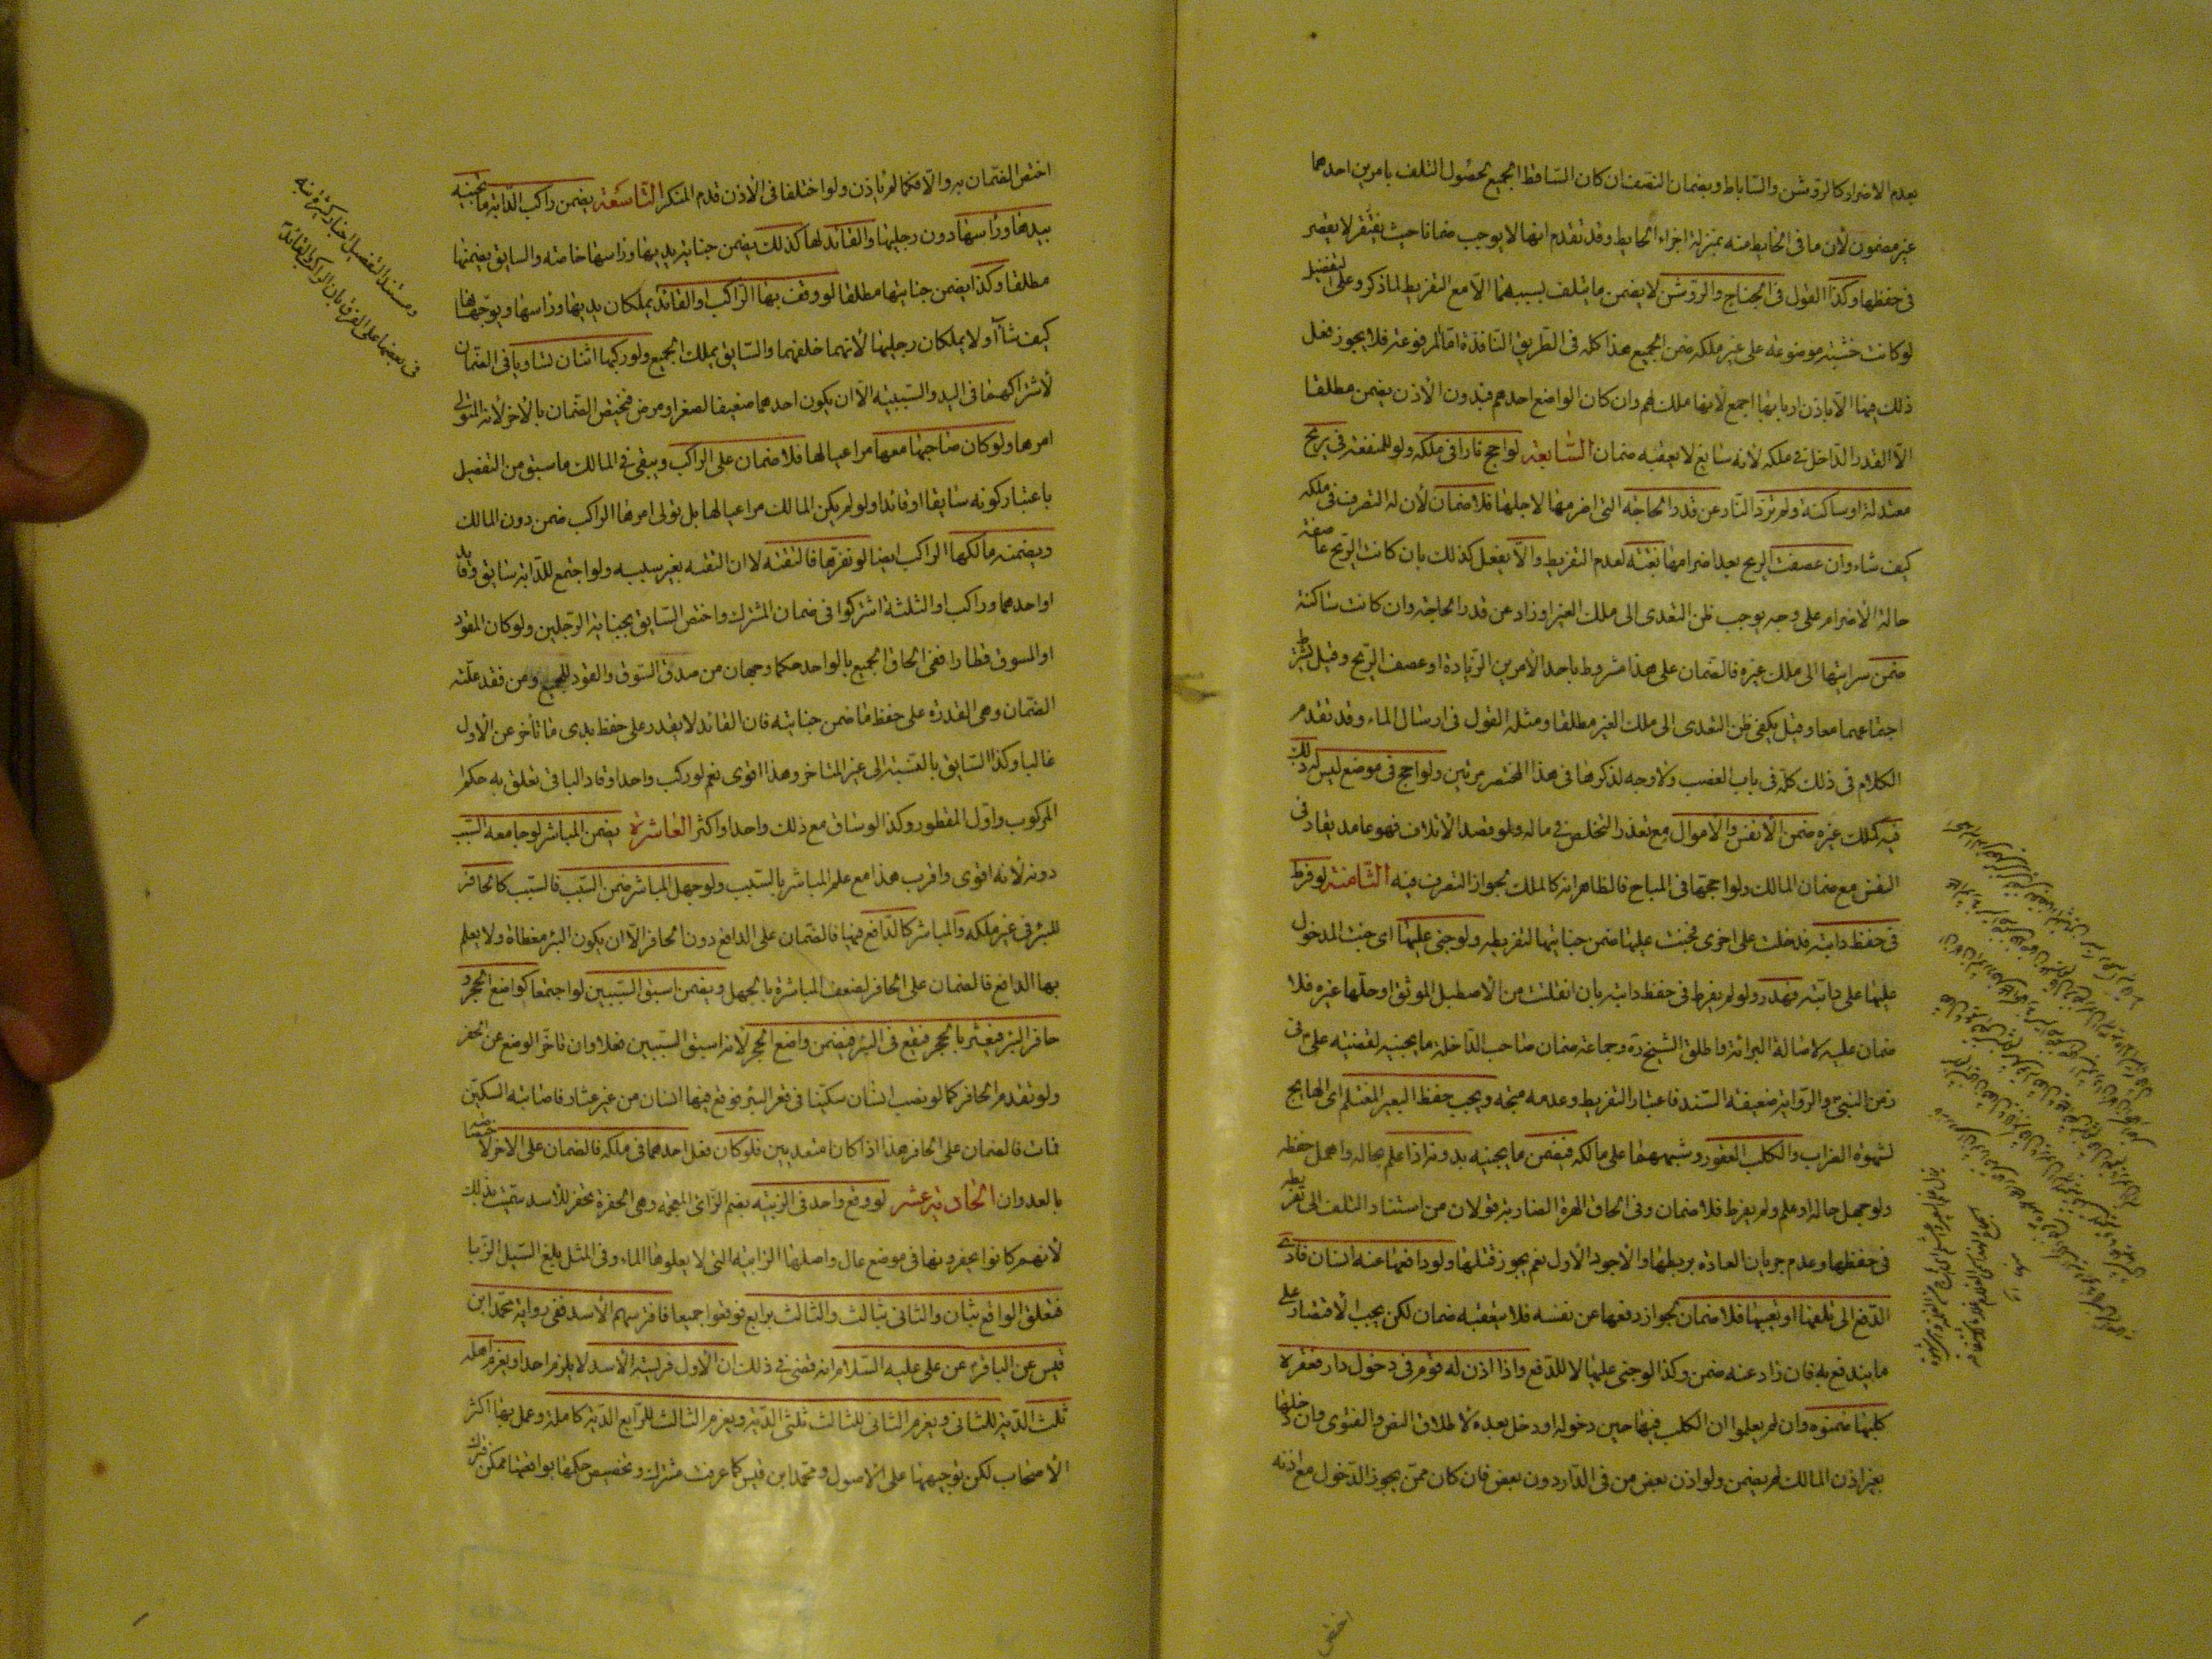 بعدم الاضرار كالروشن والساباط وبضمان النصف ان كان الساقط الجميع لحصول التلف بامرين احدهما
غير مضمون لأن ما فى الحايط منه بمنزلة اجزاء الحايط وقد تقدم انها لا يوجب ضمانا حيث يقصر
فى حفظها وكذا القول فى الجناح والروشن لا يضمن ما يتلف بسببهما الا مع التفريط لما ذكر وعلى التفصيل
لو كانت خشبة موضوعة على غير ملكه ضمن الجميع هذا كله فى الطريق النافذة اما المرفوعة فلا يجوز فعل
ذلك فيها الا باذن اربابها اجمع لأنها ملك لهم وان كان الواضع احدهم فبدون الأذن يضمن مطلقا
الا القدر الداخل فى ملكه لأنه سايغ لا يعقبه ضمان السابعة لو اجج نارا فى ملكه ولو للمنفعة فى ريح
معتدلة او ساكنة ولم تزد النار عن قدر الحاجة التى اضرمها لاجلها فلا ضمان لأن له التصرف فى ملكه
كيف شاء وان عصفت الريح بعد اضرامها بغتة لعدم التفريط والا يفعل كذلك بان كانت الريح عاصفة
حالة الأضرام على وجه يوجب ظن التعدى الى ملك الغير او زاد عن قدر الحاجة وان كانت ساكنة
ضمن سرايتها الى ملك غيره فالضمان على هذا مشروط باحد الأمرين الزيادة او عصف الريح وقيل يشترط
اجتماعهما معا وقيل يكفى ظن التعدى الى ملك الغير مطلقا ومثله القول فى ارسال الماء وقد تقدم
الكلام فى ذلك كله فى باب الغصب ولا وجه لذكرها فى هذا المختصر مرتين ولو اجج فى موضع ليس له ذلك
فيه كملك غيره ضمن الأنفس والأموال مع تعذر التخلص فى ماله ولو قصد الأتلاف فهو عامد يقاد فى
النفس مع ضمان المالك ولو اججها فى المباح فالظاهر انه كالملك لجواز التصرف فيه الثامنة لو فرط
فى حفظ دابته فدخلت على اخرى فجنت عليها ضمن جنايتها لتفريطه ولو جنى عليها اى جنت المدخول
عليها على دابته فهدر ولو لم يفرط فى حفظ دابته بان انفلتت من الأصطبل الموثق او حلها غيره فلا
ضمان عليه لاصالة البرائة واطلق الشيخ ره وجماعة ضمان صاحب الداخلة ما يجنيه لقضية على ع فى
زمن النبى ص والرواية ضعيفة السند فاعتبار التفريط وعدمه متجه ويجب حفظ البعير المغتلم اى الهايج
لشهوة الضراب والكلب العقور وشبههما على مالكه فيضمن ما يجنيه بدونه اذا علم بحاله واهمل حفظه
ولو جهل حاله او علم ولم يفرط فلا ضمان وفى الحاق الهرة الضارية قولان من استناد التلف الى تفريطه
فى حفظها وعدم جريان العادة بربطها والأجود الأول نعم يجوز قتلها ولو دافعها عنه انسان فادى
الدفع الى تلفها او تعيبها فلا ضمان لجواز دفعها عن نفسه فلا يتعقبه ضمان لكن يجب الأقتصار على
ما يندفع به فان زاد عنه ضمن وكذا لو جنى عليها لا للدفع واذا اذن له قوم فى دخول دار فعقره
كلبها ضمنوه وان لم يعلموا ان الكلب فيها حين دخوله او دخل بعده لاطلاق النص والفتوى وان دخلها
بغير اذن المالك لم يضمن ولو اذن بعض من فى الدار دون بعض فان كان ممن يجوز الدخول مع اذنه
اختص
اختص الضمان به والا فكما لم ياذن ولو اختلفا فى الأذن قدم المنكر التاسعة يضمن راكب الدابة ما تجنيه
بيدها وراسها دون رجليها والقائد لها كذلك يضمن جناية يديها وراسها خاصة والسايق يضمنها
مطلقا وكذا يضمن جنايتها مطلقا لو وقف بها الراكب او القائد يملكان يديها وراسها ويوجهانها
كيف شاآ ولا يملكان رجليها لأنهما خلفهما والسايق يملك الجميع ولو ركبها اثنان تساويا فى الضمان
لأشتراكهما فى اليد والسببية الا ان يكون احدهما ضعيفا لصغر او مرض فيختص الضمان بالأخر لأنه المتولى
امرها ولو كان صاحبها معها مراعيا لها فلا ضمان على الراكب ويبقى فى المالك ما سبق من التفصيل
باعتبار كونه سايقا او قائدا ولو لم يكن المالك مراعيا لها بل تولى امرها الراكب ضمن دون المالك
ويضمنه مالكها الراكب ايضا لو نفرها فالقته لا ان القته بغير سببه ولو اجتمع للدابة سايق وقايد
او احدهما وراكب او الثلثة اشتركوا فى ضمان المشترك واختص السايق بجناية الرجلين ولو كان المقود
او المسوق قطارا ففى الحاق الجميع بالواحد حكما وجهان من صدق السوق والقود للجميع ومن فقد علة
الضمان وهى القدرة على حفظ ما ضمن جنايته فان القائد لا يقدر على حفظ يدى ما تأخر عن الأول
غالبا وكذا السايق بالنسبة الى غير المتاخر وهذا اقوى نعم لو ركب واحدا وقاد الباقى تعلق به حكم
المركوب واول المقطور وكذا لو ساق مع ذلك واحدا واكثر العاشرة يضمن المباشر لو جامعه السبب
دونه لأنه اقوى واقرب هذا مع علم المباشر بالسبب ولو جهل المباشر ضمن السبب فالسبب كالحافر
للبئر فى غير ملكه والمباشر كالدافع فيها فالضمان على الدافع دون الحافر الا ان يكون البئر مغطاة ولا يعلم
بها الدافع فالضمان على الحافر لضعف المباشرة بالجهل ويضمن اسبق السببين لو اجتمعا كواضع الحجر و
حافر البئر فيعثر بالحجر فيقع فى البئر فيضمن واضع الحجر لأنه اسبق السببين فعلا وان تاخر الوضع عن الحفر
ولو تقدم الحافر كما لو نصب انسان سكينا فى قعر البئر فوقع فيها انسان من غير عثار فاصابته السكين
فمات فالضمان على الحافر هذا اذا كانا متعديين فلو كان فعل احدهما فى ملكه فالضمان على الاخر لاختصاصه
بالعدوان الحادية عشر لو وقع واحد فى الزبية بضم الزاى المعجمة وهى الحفرة تحفر للأسد سميت بذلك
لأنهم كانوا يحفرونها فى موضع عال واصلها الرابية التى لا يعلوها الماء وفى المثل بلغ السيل الزبا
فتعلق الواقع بثان والثانى بثالث والثالث برابع فوقعوا جميعا فافترسهم الأسد ففى رواية محمد ابن
قيس عن الباقر ع عن على عليه السلام انه قضى فى ذلك ان الأول فريسة الأسد لا يلزم احدا ويغرم اهله
ثلث الدية للثانى ويغرم الثانى للثالث ثلثى الدية ويغرم الثالث للرابع الدية كاملة وعمل بها اكثر
الأصحاب لكن توجيهها على الأصول ومحمد ابن قيس كما عرفت مشترك وتخصيص حكمها بواقعتها ممكن فترك
ومستند التفصيل اخبار كثيرة نبه
فى بعضها على الفرق بان الراكب والقائد